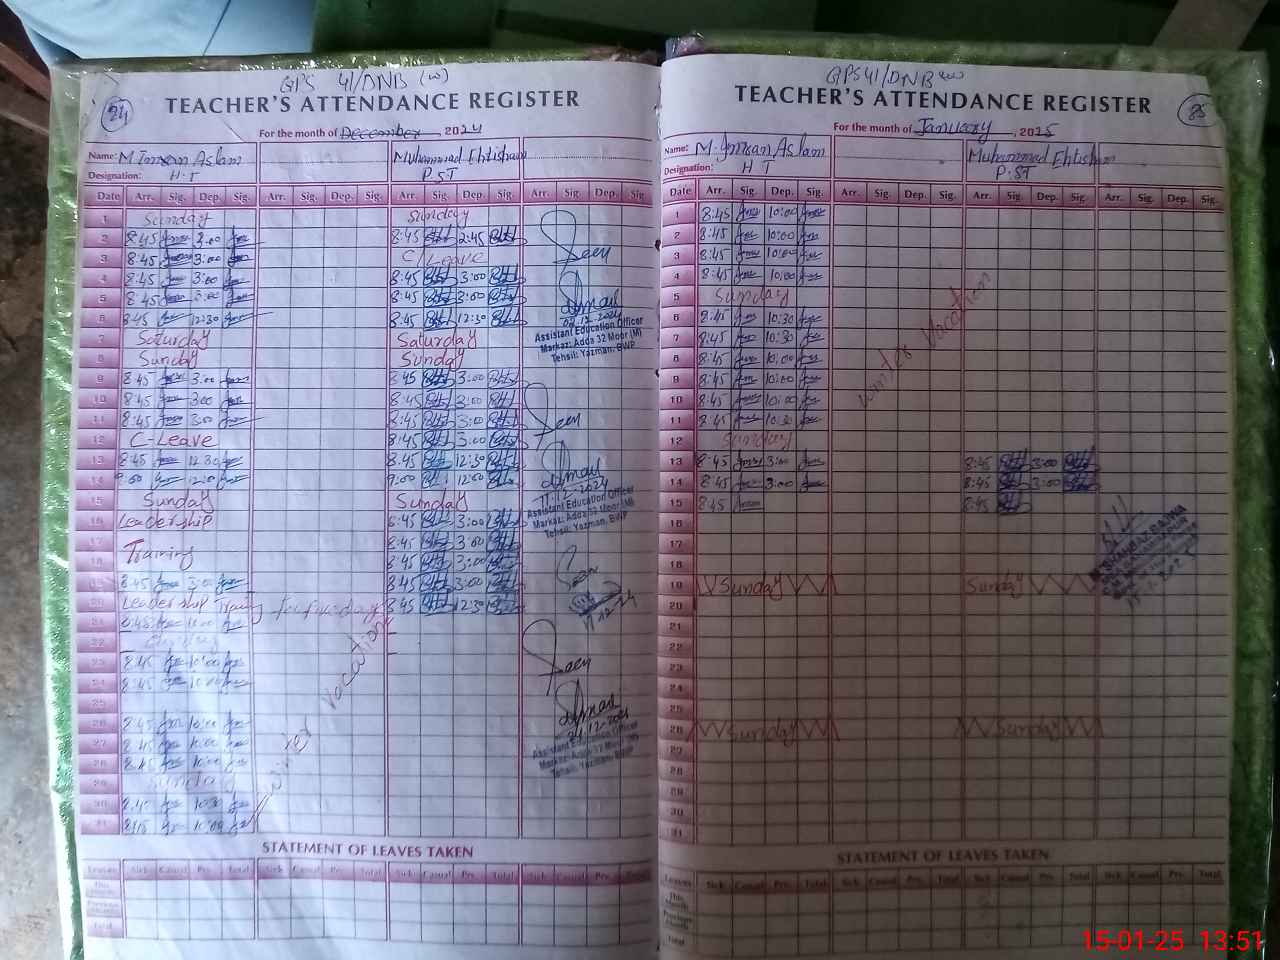 GPS 41/DNB (w)
24
TEACHER'S ATTENDANCE REGISTER
For the month of December, 2024
Name: M Imran Aslam Muhammad Ehtisham
Designation: H.T P.ST
Date Arr. Sig. Dep. Sig. Arr. Sig. Dep. Sig. Arr. Sig. Dep. Sig. Arr. Sig. Dep. Sig.
1 Sunday Sunday
2 8:45 3:00 8:45 2:45
3 8:45 3:00 C/Leave
4 8:45 3:00 8:45 3:00
5 8:45 3:00 8:45 3:00
6 8:45 12:30 8:45 12:30
7 Saturday Saturday
8 Sunday Sunday
9 8:45 3:00 8:45 3:00
10 8:45 3:00 8:45 3:00
11 8:45 3:00 8:45 3:00
12 C-Leave 8:45 3:00
13 8:45 12:30 8:45 12:30
14 9:00 12:00 9:00 12:00
15 Sunday Sunday
16 Leadership 8:45 3:00
17 8:45 3:00
Training
18 8:45 3:00
19 8:45 3:00 8:45 3:00
20 Leadership Training 8:45 12:30
21 8:45
22
23 8:45 10:00
24 8:45
25
26 8:45 10:00
27 8:45 10:00
28 8:45 10:00
29 Sunday
30 8:45 10:30
31 8:45 10:00
Winter Vacation
Seen
Assistant Education Officer
Markaz: Adda 32 Moor (M)
Tehsil: Yazman, BWP
Seen
11.12.2024
Assistant Education Officer
Markaz: Adda 32 Moor (M)
Tehsil: Yazman, BWP
Seen
17.12.24
Seen
Assistant Education Officer
Markaz: Adda 32 Moor (M)
Tehsil: Yazman, BWP
STATEMENT OF LEAVES TAKEN
Leaves Sick Casual Prv. Total Sick Casual Prv. Total Sick Casual Prv. Total Sick Casual Prv. Total
This Month
Previous Month
Total
GPS 41/DNB (w)
85
TEACHER'S ATTENDANCE REGISTER
For the month of January, 2025
Name: M. Imran Aslam Muhammad Ehtisham
Designation: H T P.ST
Date Arr. Sig. Dep. Sig. Arr. Sig. Dep. Sig. Arr. Sig. Dep. Sig. Arr. Sig. Dep. Sig.
1 8:45 10:00
2 8:45 10:00
3 8:45 10:00
4 8:45 10:00
5 Sunday
6 8:45 10:30
7 8:45 10:30
8 8:45 10:00
9 8:45 10:00
10 8:45 10:00
11 8:45 10:30
12 Sunday
13 8:45 3:00 8:45 3:00
14 8:45 3:00 8:45 3:00
15 8:45 8:45
16
17
18
19 Sunday Sunday
20
21
22
23
24
25
26 Sunday Sunday
27
28
29
30
31
Winter Vacation
STATEMENT OF LEAVES TAKEN
Leaves Sick Casual Prv. Total Sick Casual Prv. Total Sick Casual Prv. Total Sick Casual Prv. Total
This Month
Previous Month
Total
15-01-25 13:51